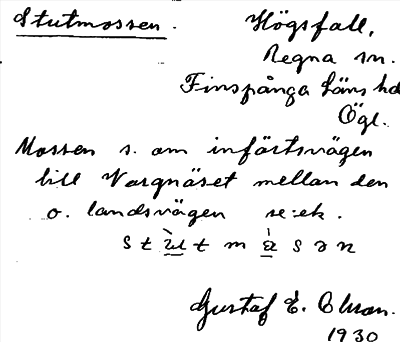 Stutmossen. Högsfall,
Regna sn.
Finspånga läns hd
Ögl.
Mossen s. om infartsvägen
till Vargnäset mellan den
o. landsvägen se: ek.
s t u̠̇ t m ȧ̠ s ə n
Gustaf E. Olsson.
1930